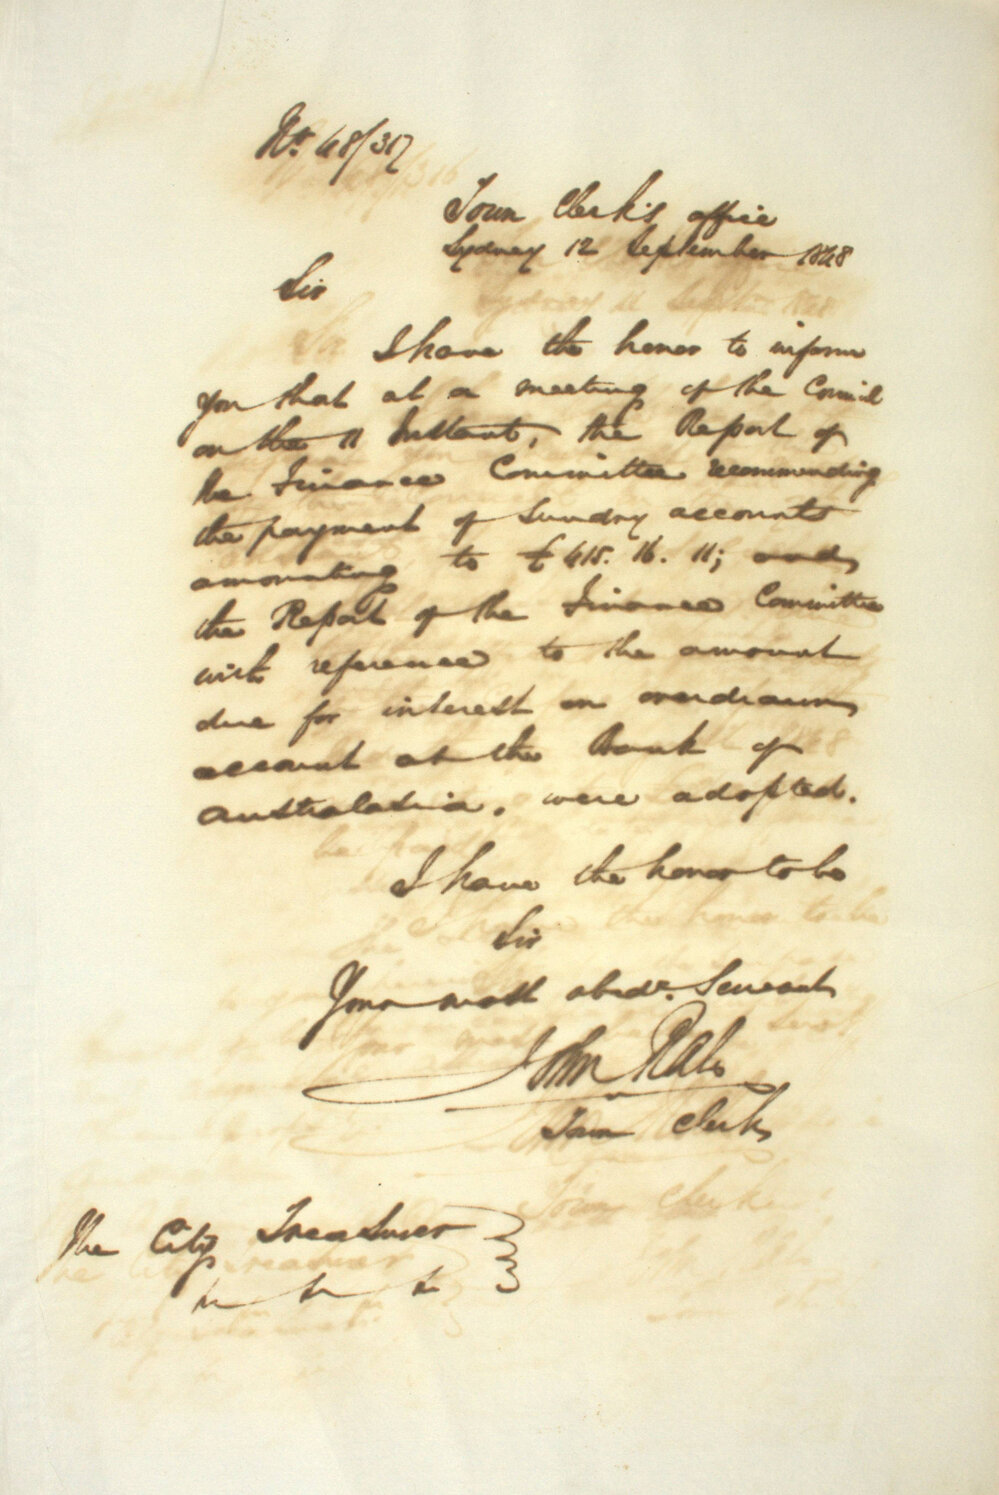 No. 48/317
Town Clerk's office
Sydney 12 September 1848
Sir
I have the honor to inform
you that at a meeting of the Council
on the 11 Instant, the Report of
the Finance Committee recommending
the payment of Sundry accounts
amounting to £415.16.11; and
the Report of the Finance Committee
with reference to the amount
due for interest on overdrawn
account at the Bank of
Australasia, were adopted.
I have the honor to be
Sir
Your most obedt. Servant
John Rae
Town Clerk
The City Treasurer